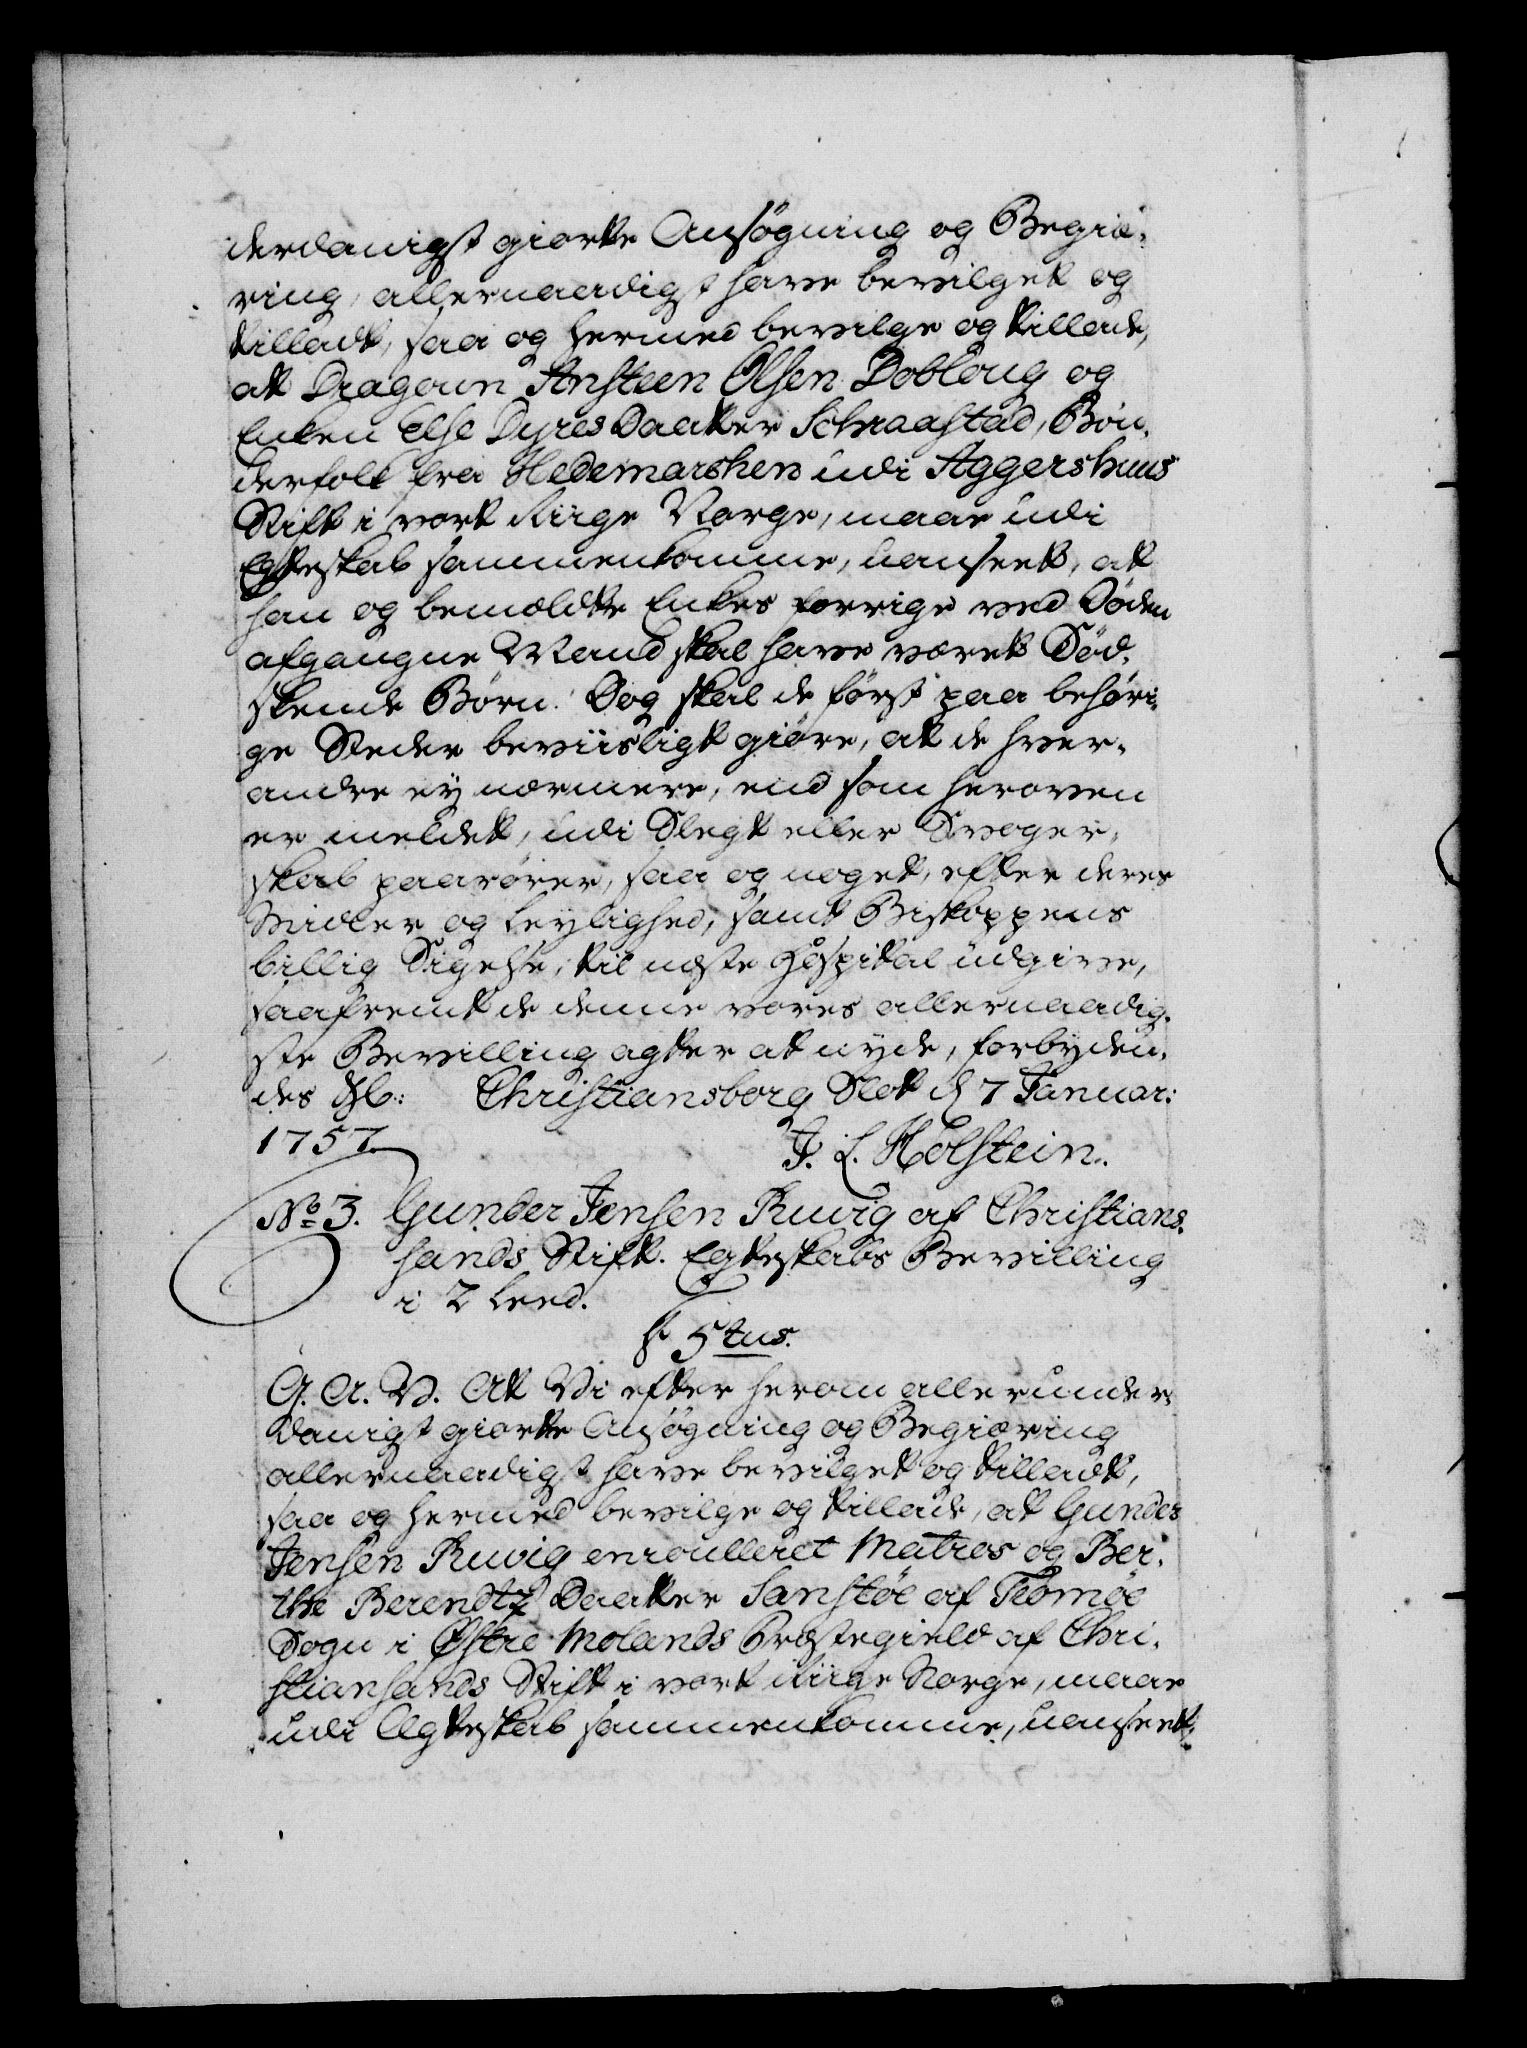 derdanigst giorte Ansøgning og Begiæ-
ring, allernaadigst have bevilget og
tilladt, saa og hermed bevilge og tillade,
at Dragoun Ansteen Olsen Dobloug og
Enken Else Dyres Daatter Schraastad, Bøn-
derfolk fra Hedemarchen udi Aggershuus
Stift i vort Riige Norge, maae udi
Egteskab sammenkomme, uanseet, at
han og bemældte Enkes forrige ved Døden
afgangne Mand skal have været Sød-
skende Børn. Dog skal de først paa behøri-
ge Steder beviisligt giøre, at de hver-
andre ey nærmere, end som heroven
er meldet, udi Slegt eller Svoger-
skab paarører, saa og noget, efter deres
Midler og Leylighed, samt Biskoppens
billig Sigelse, til næste Hospital udgive,
saafremt de denne vores allernaadig-
ste Bevilling agter at nyde, forbyden-
des &c: Christiansborg Slot d 7 Januar:
1757.
J. L. Holstein.
No 3. Gunder Jensen Ruvig af Christians-
hands Stift. Egteskabs Bevilling
i 2 Leed.
F 5tus.
G. A. V. At Vi efter herom allerunder-
danigst giorte Ansøgning og Begiæring
allernaadigst have bevilget og tilladt,
saa og hermed bevilge og tillade, at Gunder
Jensen Ruvig enroulleret Matros og Ber-
the Berendtz Daatter Sanstøe af Tromøe
Sogn i Østre Molands Præstegield af Chri-
stiansands Stift i vort Riige Norge, maae
udi Ægteskab sammenkomme, uanseet,